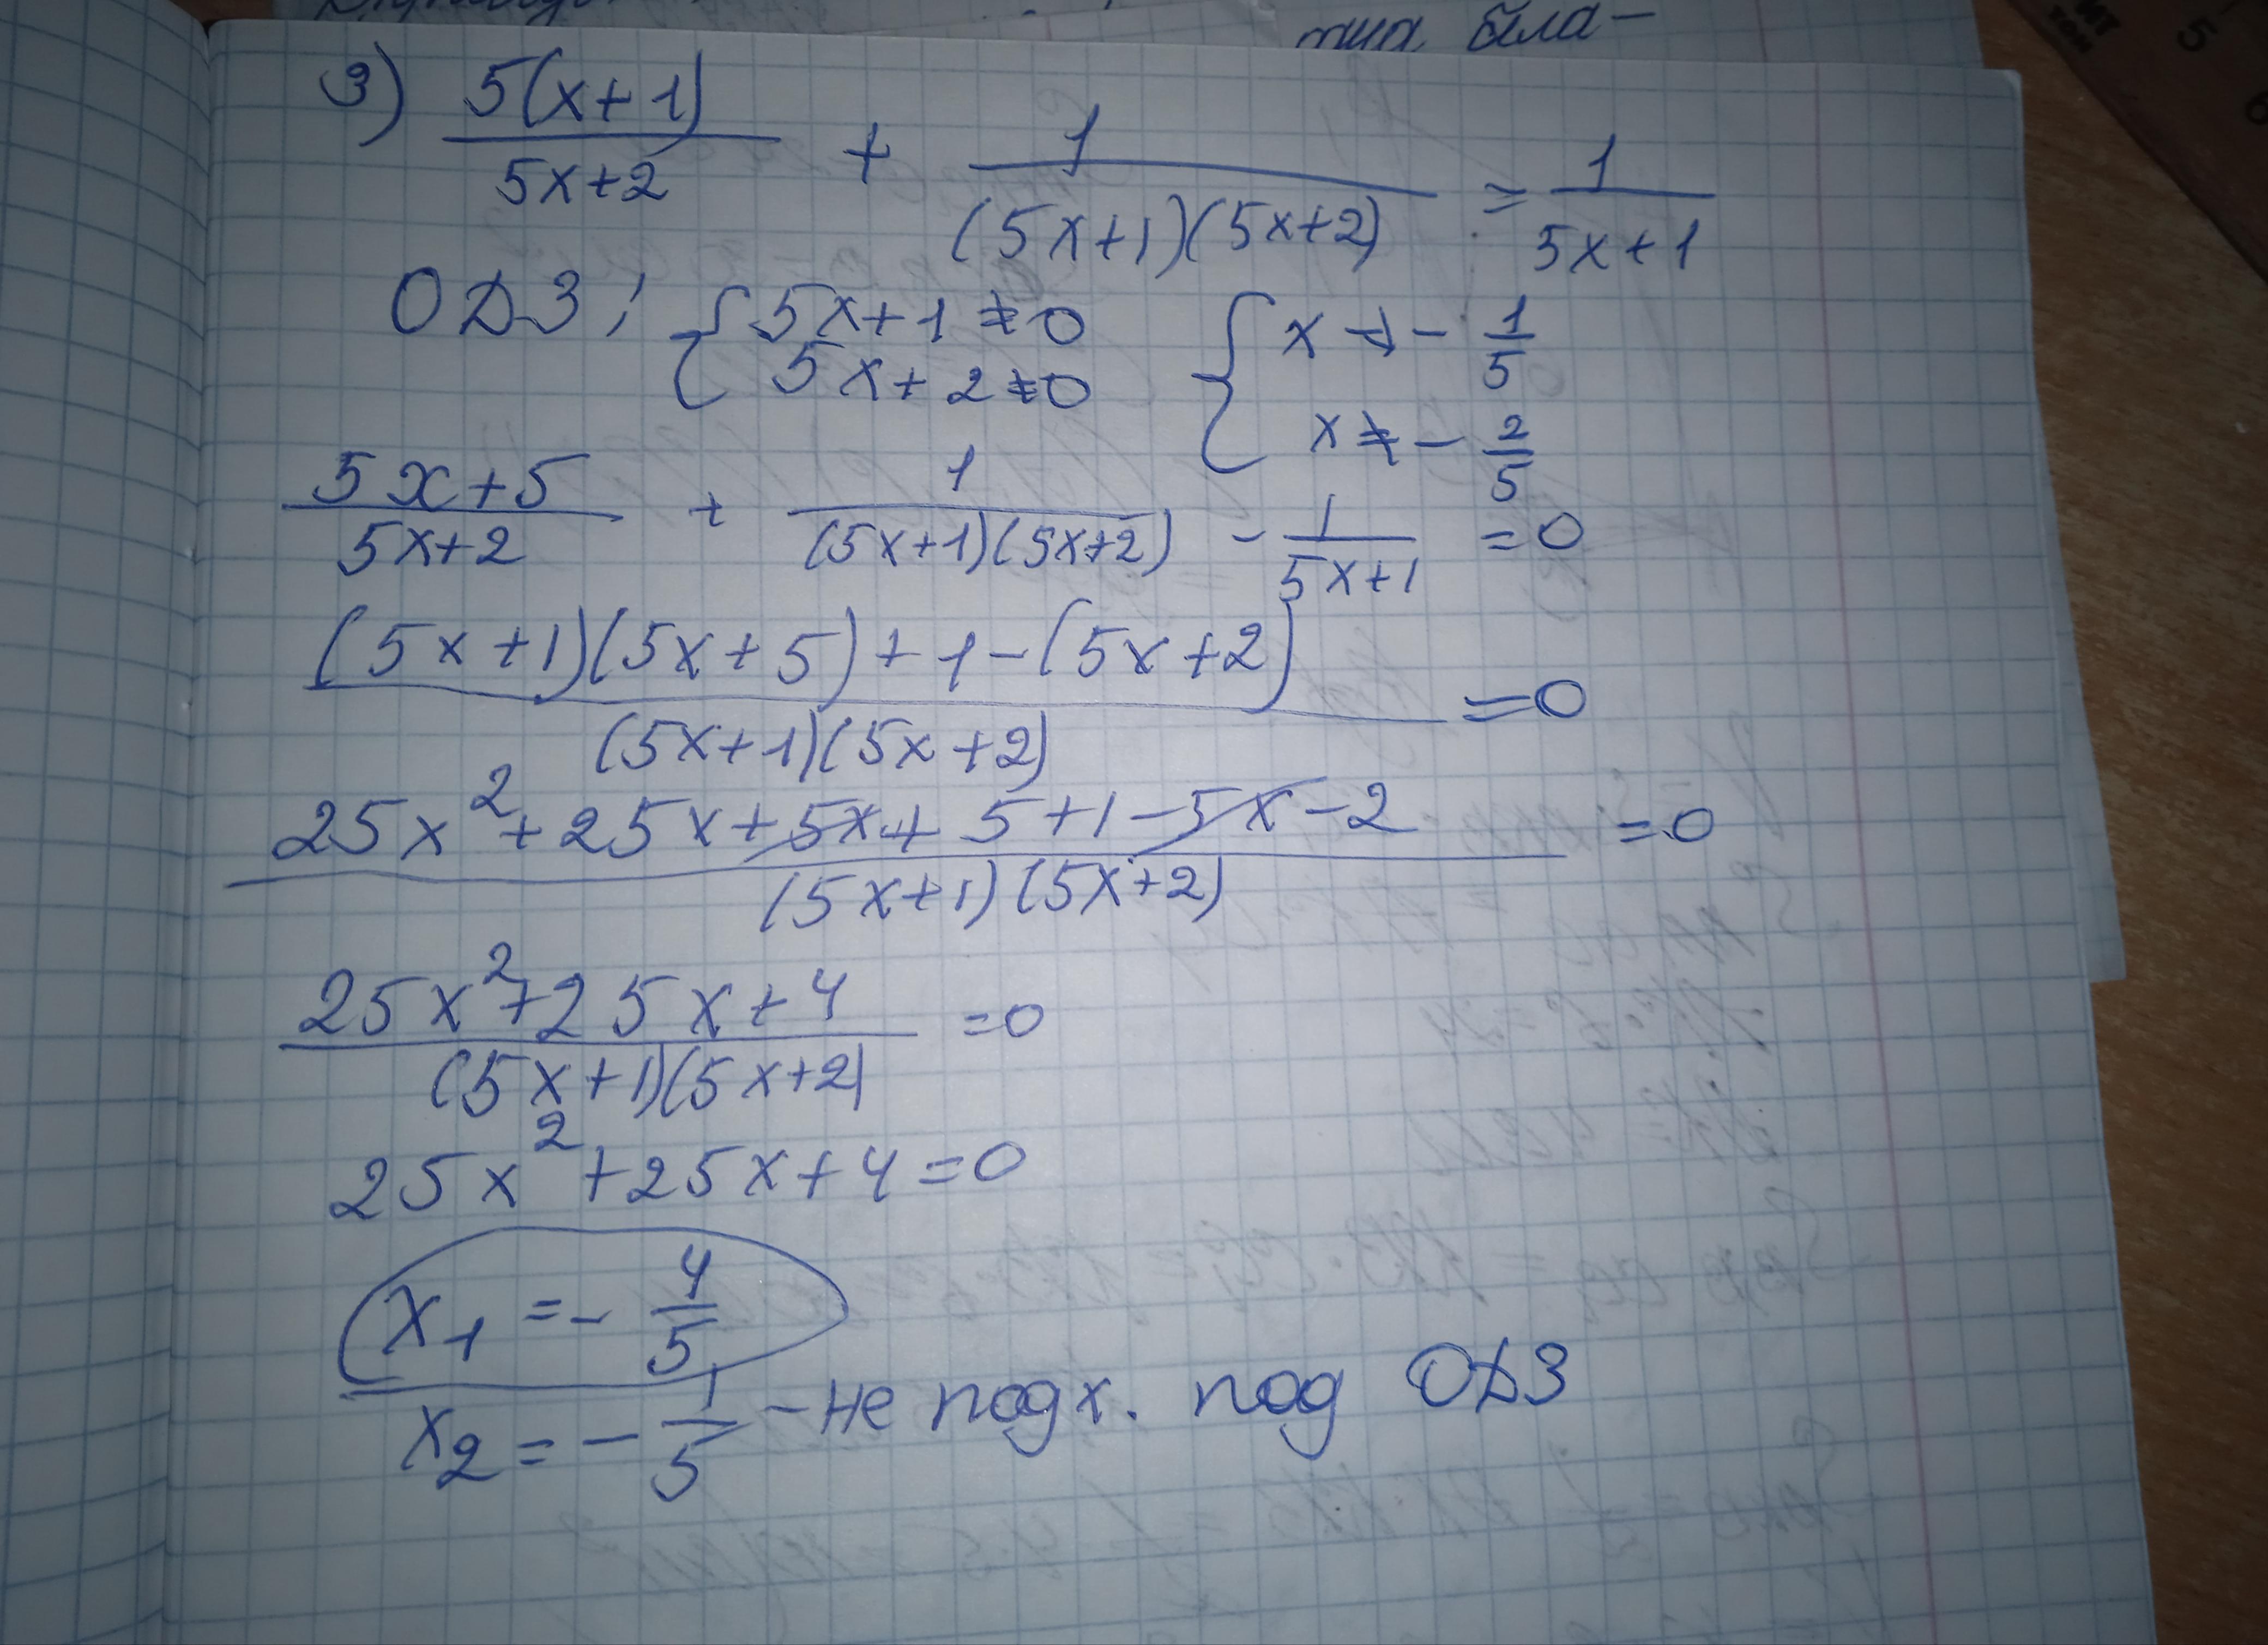 тила бла-
ИТ
5
6
3) 5(x+1)/5x+2 + 1/(5x+1)(5x+2) = 1/5x+1
ОДЗ: { 5x+1≠0 5x+2≠0 { x≠-1/5 x≠-2/5
5x+5/5x+2 + 1/(5x+1)(5x+2) - 1/5x+1 =0
(5x+1)(5x+5)+1-(5x+2)/(5x+1)(5x+2) =0
25x²+25x+5x+5+1-5x-2/(5x+1)(5x+2) =0
25x²+25x+4/(5x+1)(5x+2) =0
25x²+25x+4=0
x₁=-4/5
x₂=-1/5 -не подх. под ОДЗ